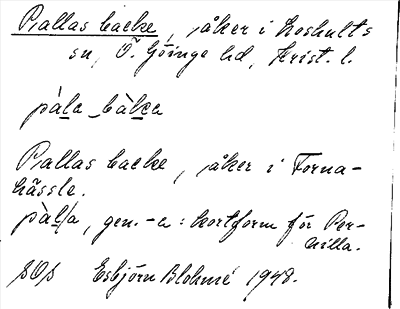 Pallas backe, åker i Loshults
sn, Ö. Göinge hd, Krist. l.
pàla bàka
Pallas backe, åker i Torna-
hässle.
pàla, gen. -a: kortform för Per-
nilla.
SOS Esbjörn Blohmé 1948.